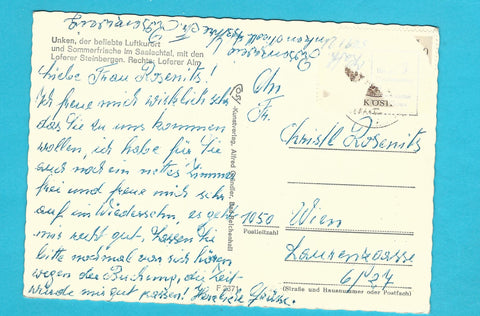 Unken, der beliebte Luftkurort
und Sommerfrische im Saalachtal, mit den
Loferer Steinbergen. Rechts: Loferer Alm
Liebe Frau Rosenits!
Ich freue mich wirklich sehr
das Sie zu uns kommen
wollen, ich habe für Sie
auch noch ein nettes Zimmer
frei und freue mich sehr
auf ein Wiedersehn, es geht
mir recht gut, Lassen Sie
bitte nochmal von sich hören
wegen der Buchung, die Zeit
würde mir gut passen! Herzliche Grüsse.
Kunstverlag, Alfred Bad Reichenhall
An
Fr.
Christl Rosenits
1050 Wien
Postleitzahl
Laurenzgasse
6/27
(Straße und Hausnummer oder Postfach)